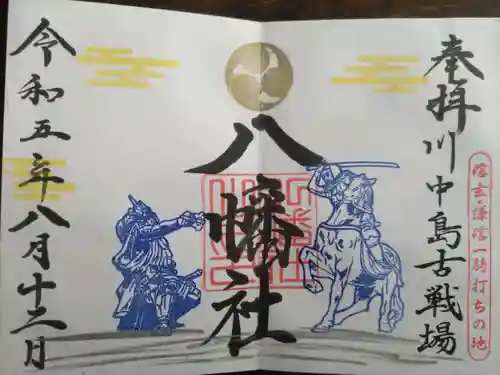 奉拝川中島古戦場
信玄・謙信一騎打ちの地
八幡社
令和五年八月十二日